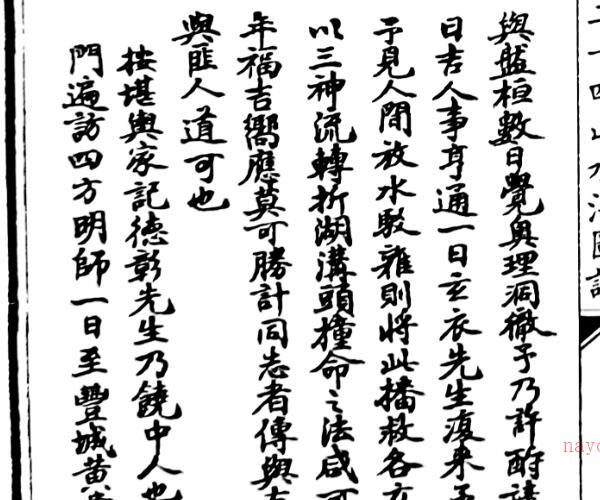 二十四山水法圖訣
與盤桓數日覺奧理洞徹予乃許酧
日吉人事亨通一日玄衣先生復來
予見人間放水駁雜則將此播救各
以三神流轉折湖溝頭撞命之法咸可
年福吉嚮應莫可勝計同志者傳與
與匪人道可也
按堪輿家記德彰先生乃饒中人也
門遍訪四方明師一日至豐城黃
nayo